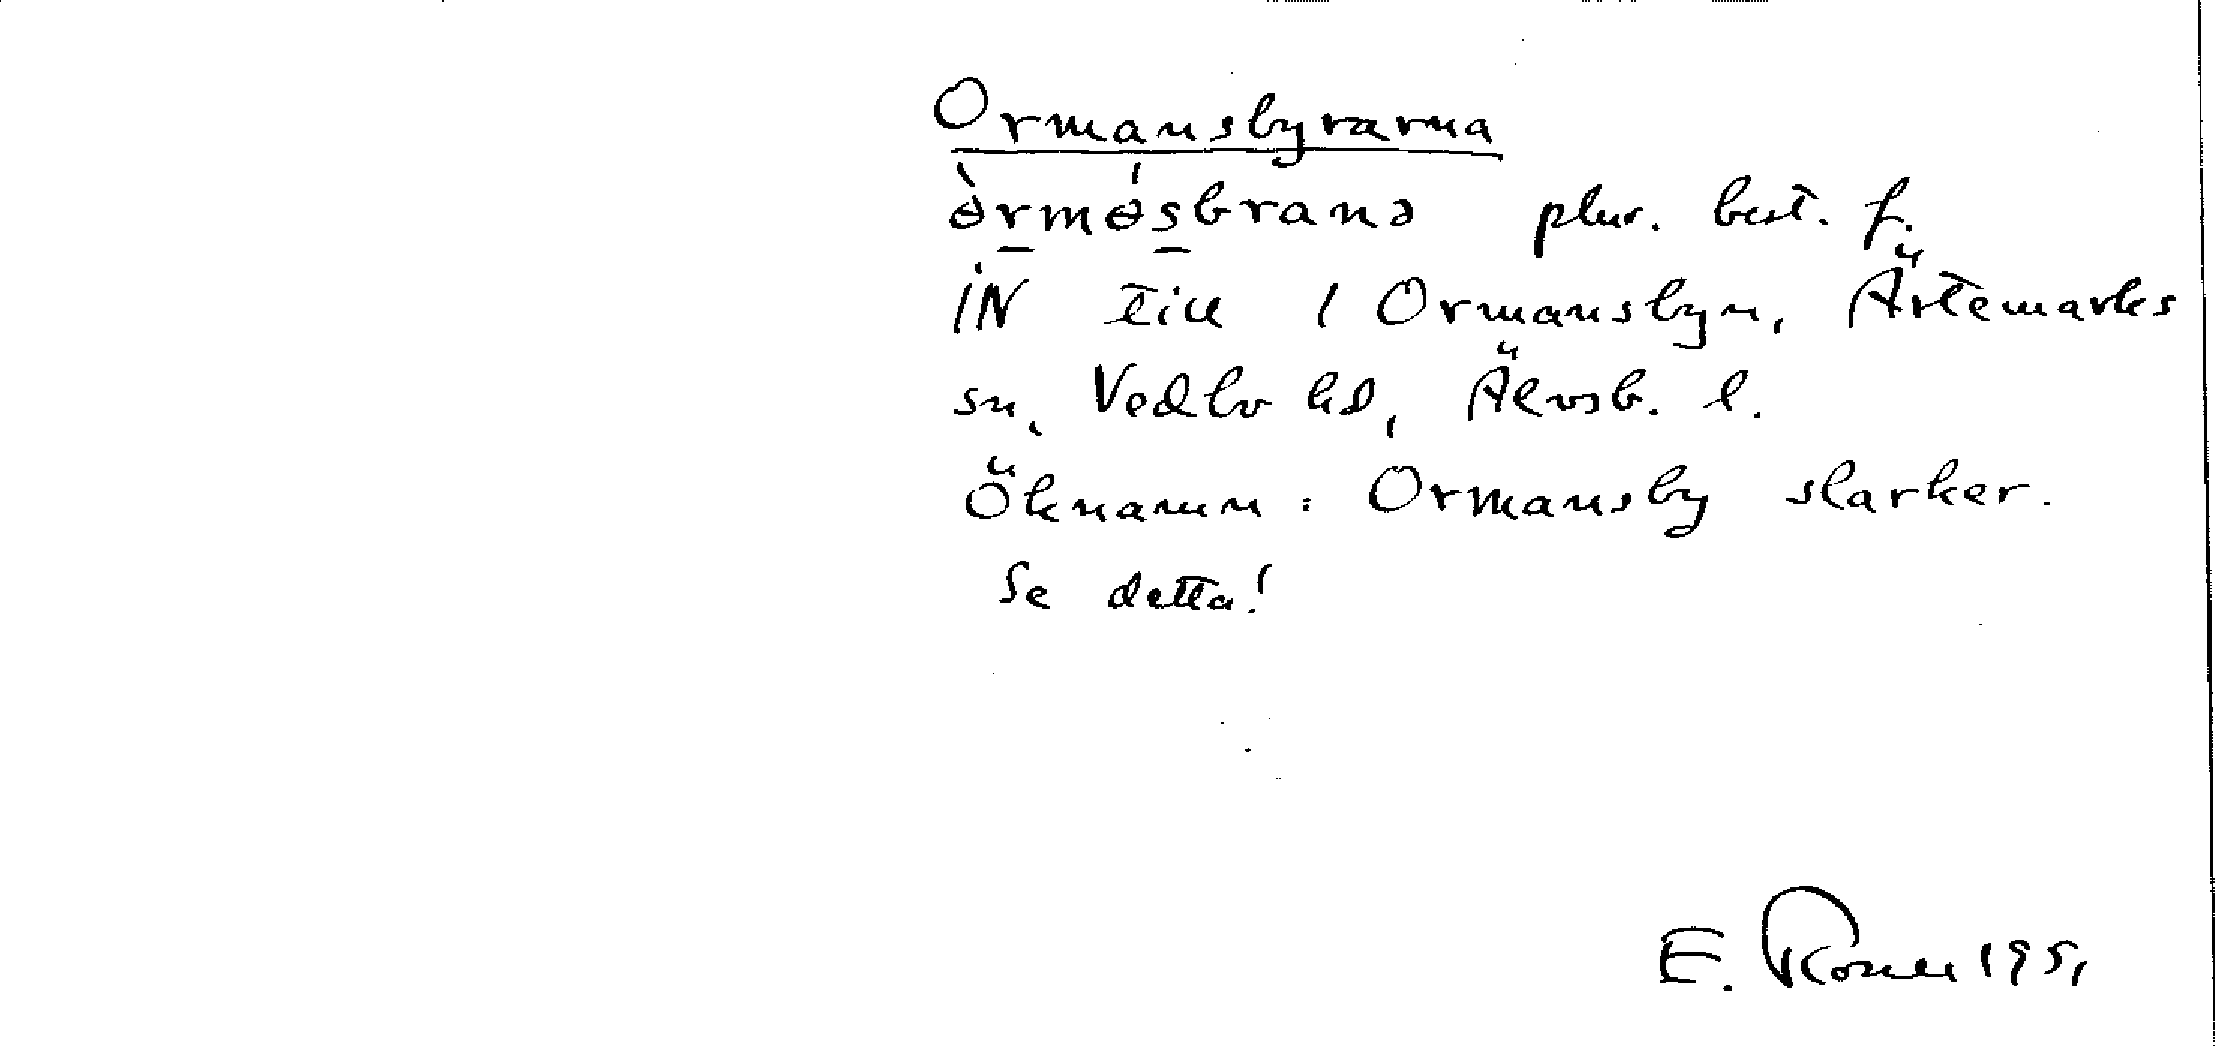 Ormansbyrarna
ə̀rmə́sbranə plur. best. f.
IN till 1 Ormansbyn, Ärtemarks
sn, Vedbo hd, Älvsb. l.
Öknamn: Ormansby slarker.
Se detta!
E. 1951